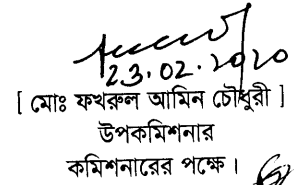 23.02.2020
[ মোঃ ফখরুল আমিন চৌধুরী ]
উপকমিশনার
কমিশনারের পক্ষে।